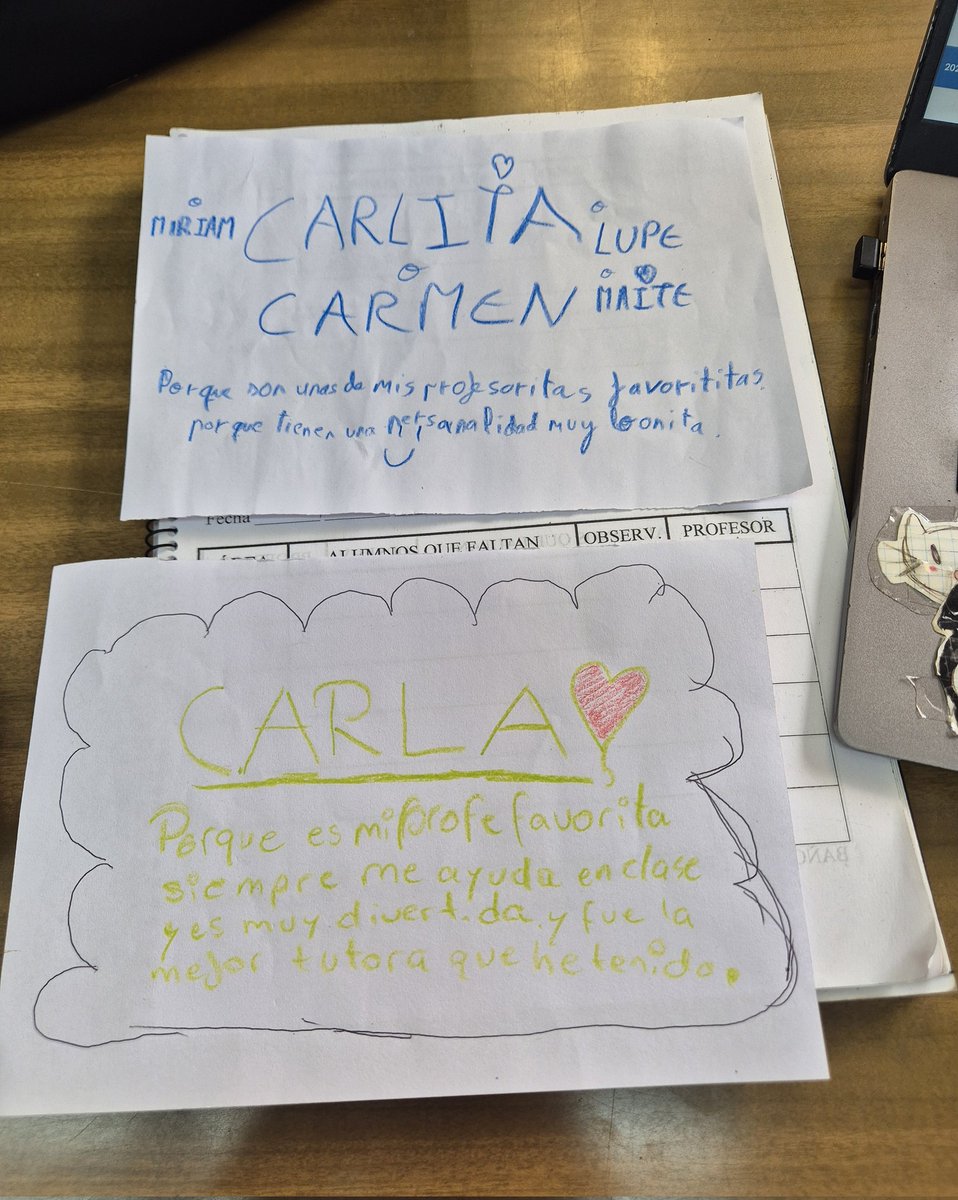 MIRIAM CARLITA LUPE
CARMEN MAITE
Porque son unas de mis profesoritas favorititas
porque tienen una personalidad muy bonita.
Fecha
ALUMNOS QUE FALTAN OBSERV. PROFESOR
CARLA
Porque es mi profe favorita
siempre me ayuda en clase
y es muy divertida y fue la
mejor tutora que he tenido.